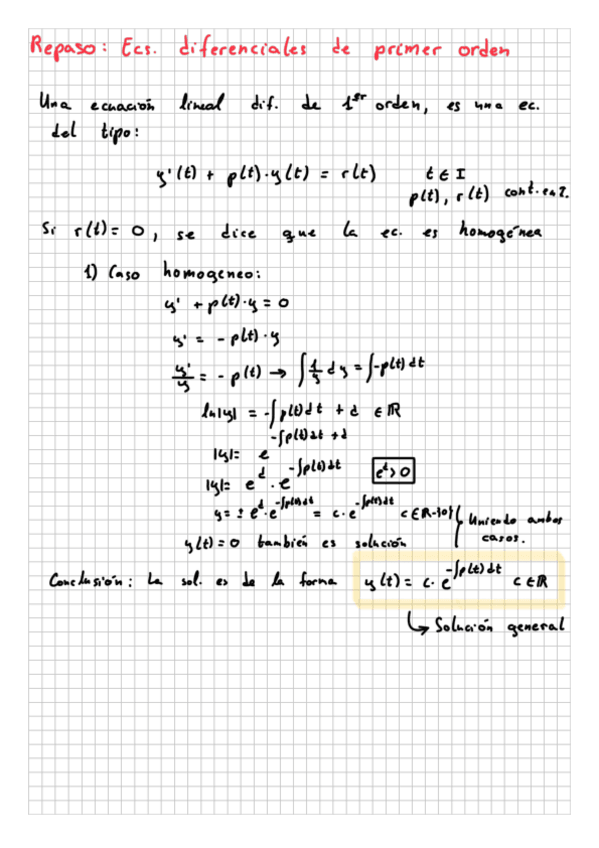 Repaso: Ecs. diferenciales de primer orden
Una ecuación lineal dif. de 1er orden, es una ec.
del tipo:
y'(t) + p(t)·y(t) = r(t)    t ∈ I
p(t), r(t) cont. en I.
Si r(t) = 0, se dice que la ec. es homogénea
1) Caso homogeneo:
y' + p(t)·y = 0
y' = - p(t)·y
y'/y = - p(t) → ∫ 1/y dy = ∫-p(t)dt
ln|y| = -∫p(t)dt + d ∈ ℝ
|y| = e^(-∫p(t)dt + d)
|y| = e^d · e^(-∫p(t)dt)    e^d > 0
y = ± e^d · e^(-∫p(t)dt) = c · e^(-∫p(t)dt)    c ∈ ℝ-{0}
y(t) = 0 también es solución
Uniendo ambos
casos.
Conclusión: La sol. es de la forma y(t) = c · e^(-∫p(t)dt)    c ∈ ℝ
↳ Solución general